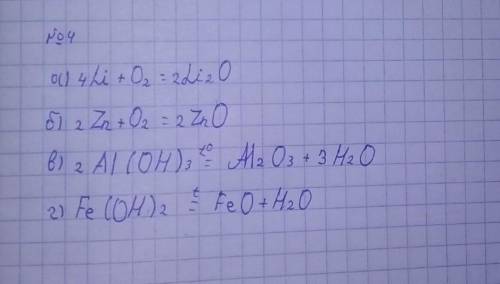 №4
а) 4Li + O₂ = 2Li₂O
б) 2Zn + O₂ = 2ZnO
в) 2Al(OH)₃ =^{t°} Al₂O₃ + 3H₂O
г) Fe(OH)₂ =^{t} FeO + H₂O